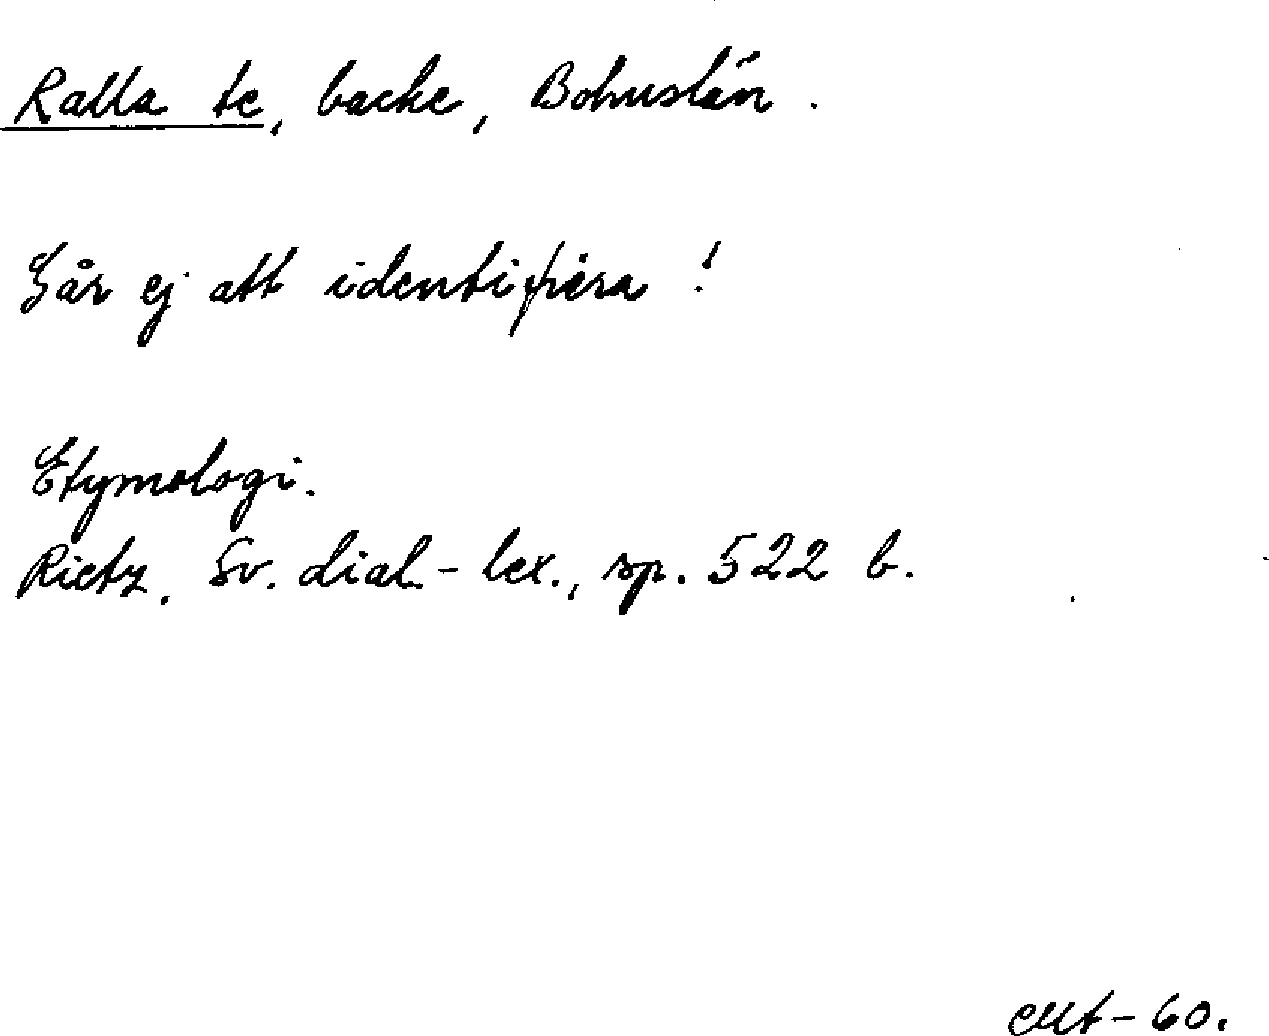 Ralla te, backe, Bohuslän.
Går ej att identifiera!
Etymologi.
Rietz. Sv. dial-lex., sp. 522 b.
-60.